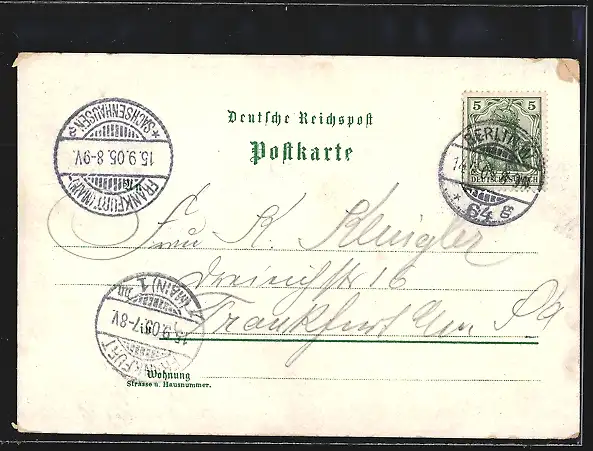 Deutsche Reichspost
Postkarte
5 5
DEUTSCHES REICH
BERLIN W.
* 64 g
FRANKFURT (MAIN)
15.9.05.8-9V.
* SACHSENHAUSEN *
FRANKFURT
15.9.05.7-8V
(MAIN) 1
Frau K.
Dreieichstr 16
in Frankfurt a/m
Wohnung
Strasse u. Hausnummer.